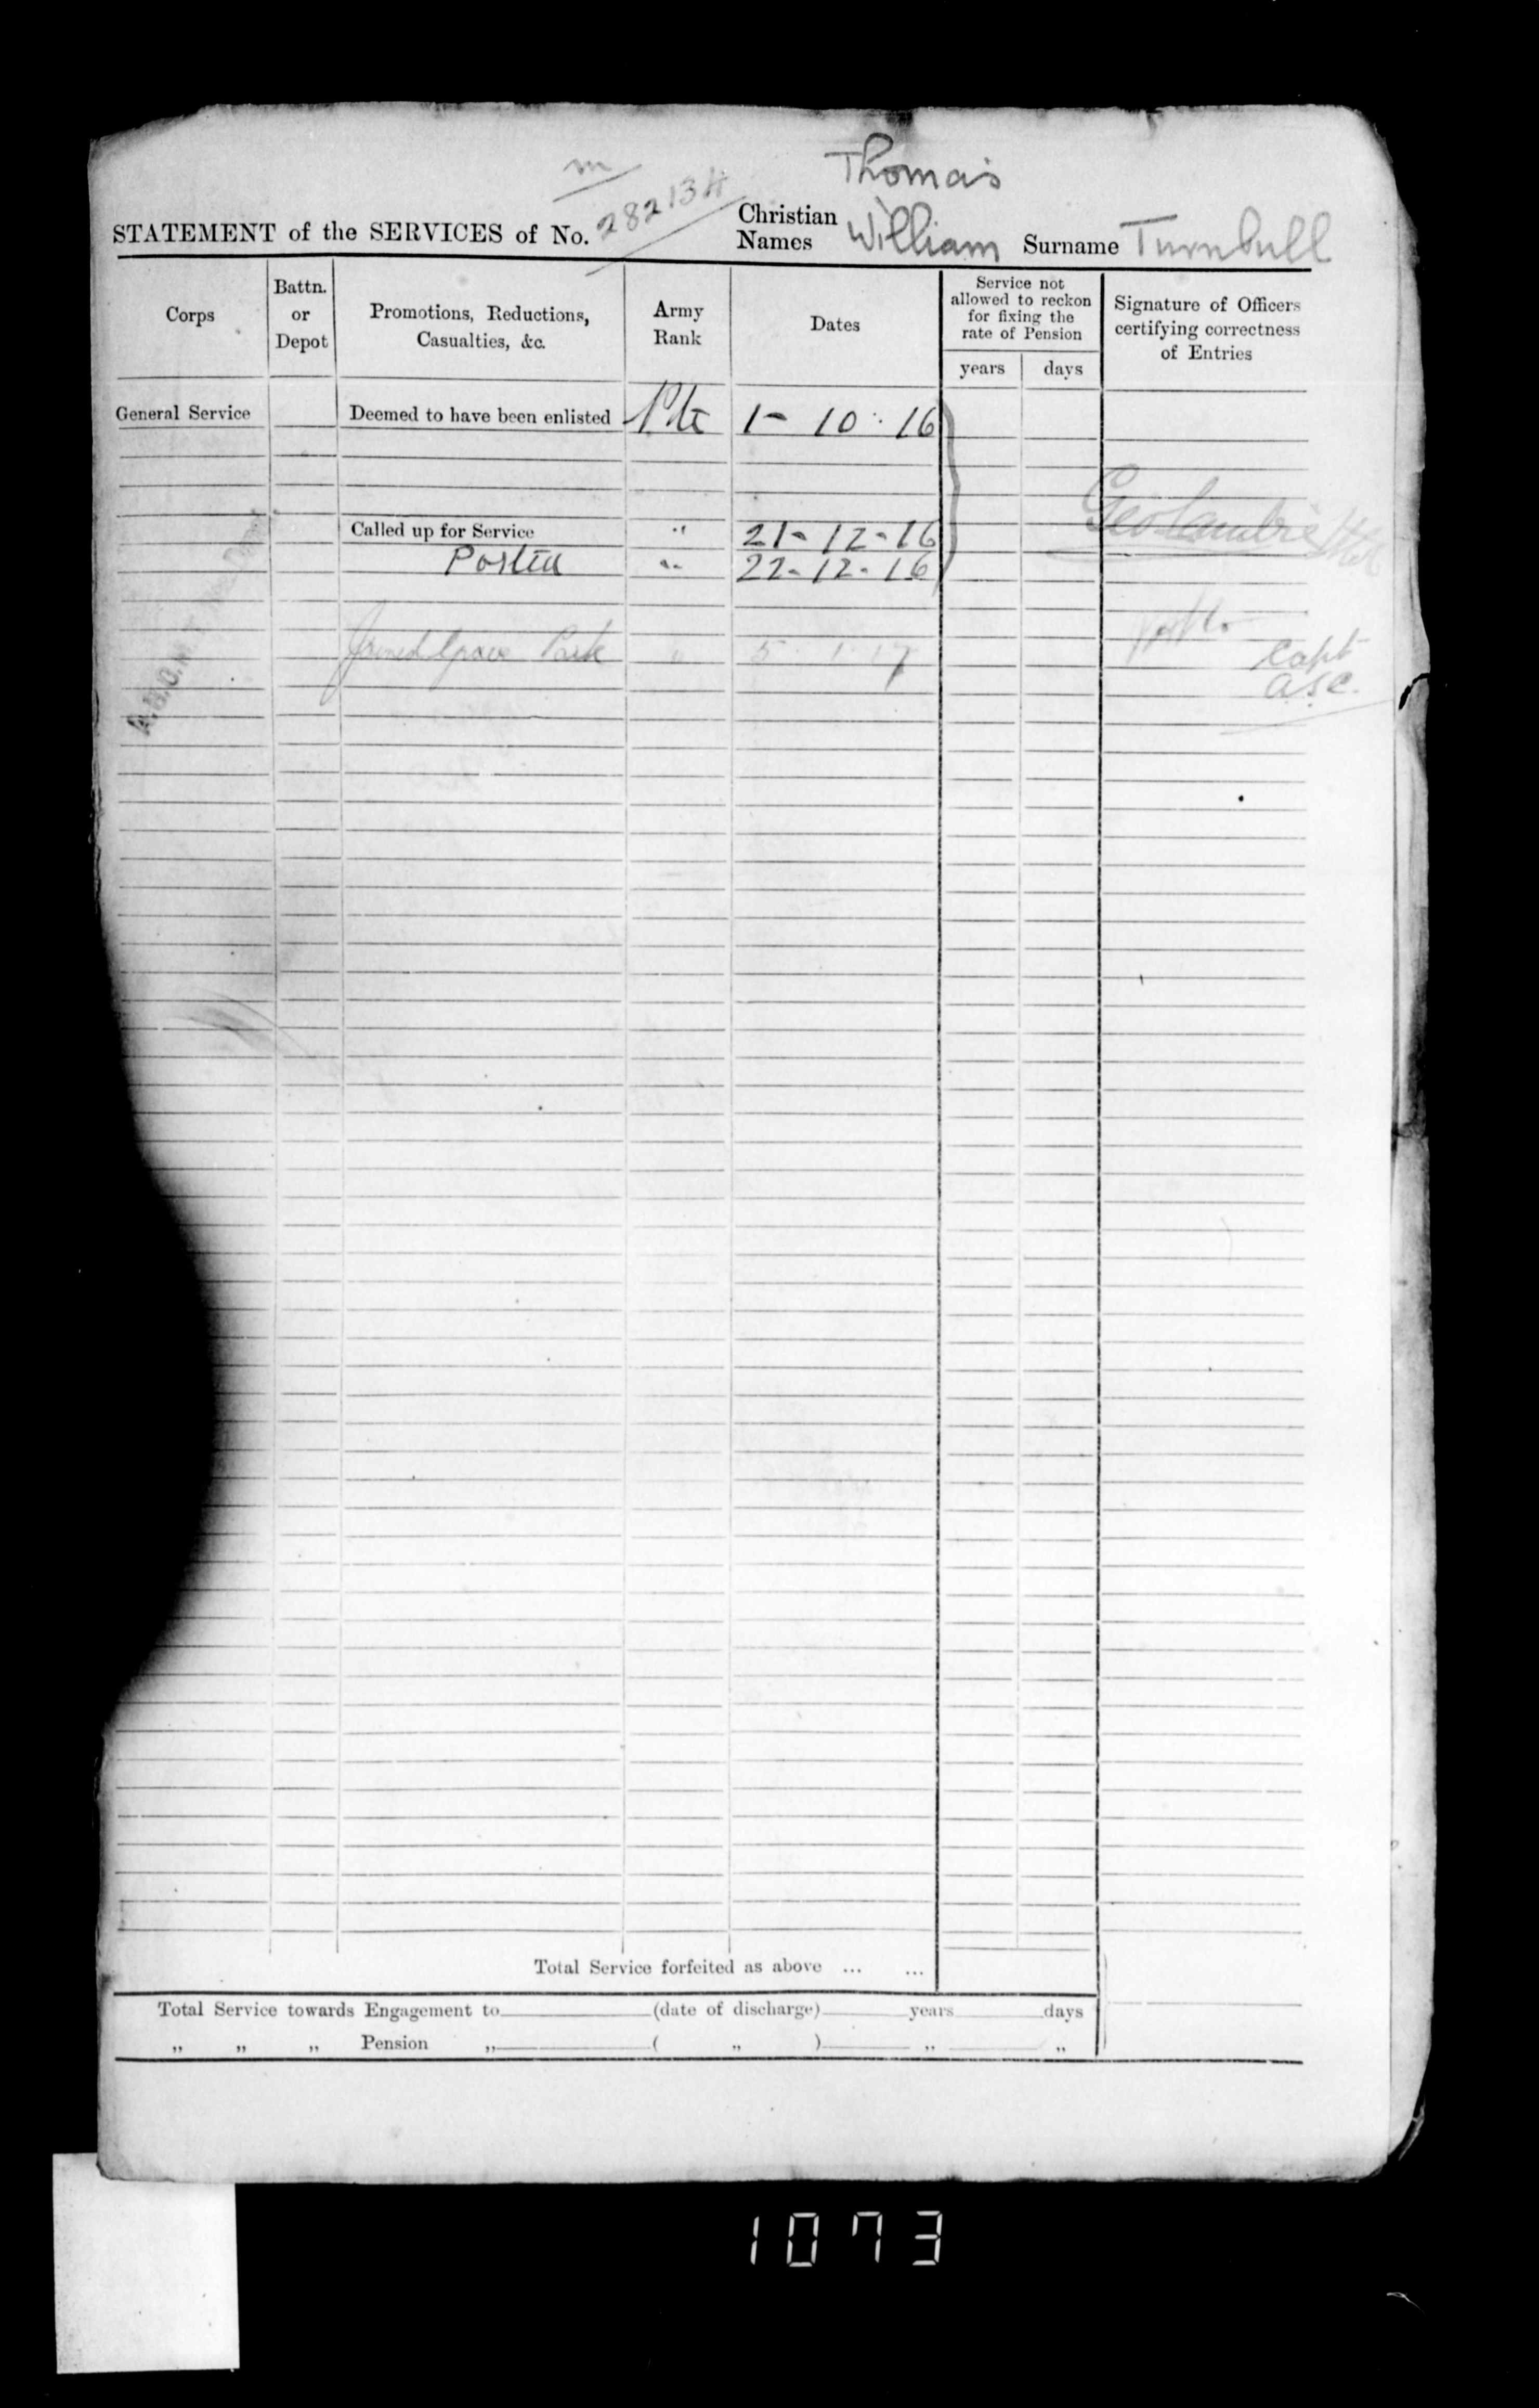 Thomas
m
STATEMENT of the SERVICES of No. 282134 Christian Names William Surname Turnbull
Corps
Battn. or Depot
Promotions, Reductions, Casualties, &c.
Army Rank
Dates
Service not allowed to reckon for fixing the rate of Pension
years days
Signature of Officers certifying correctness of Entries
General Service Deemed to have been enlisted Pte 1- 10 : 16
Called up for Service " 21-12-16
Posted " 22-12-16
Joined Grove Park " 5 1 17
Capt
A.S.C.
Total Service forfeited as above ... ...
Total Service towards Engagement to (date of discharge) years days
„ „ „ Pension „ ( „ ) „ „
1073